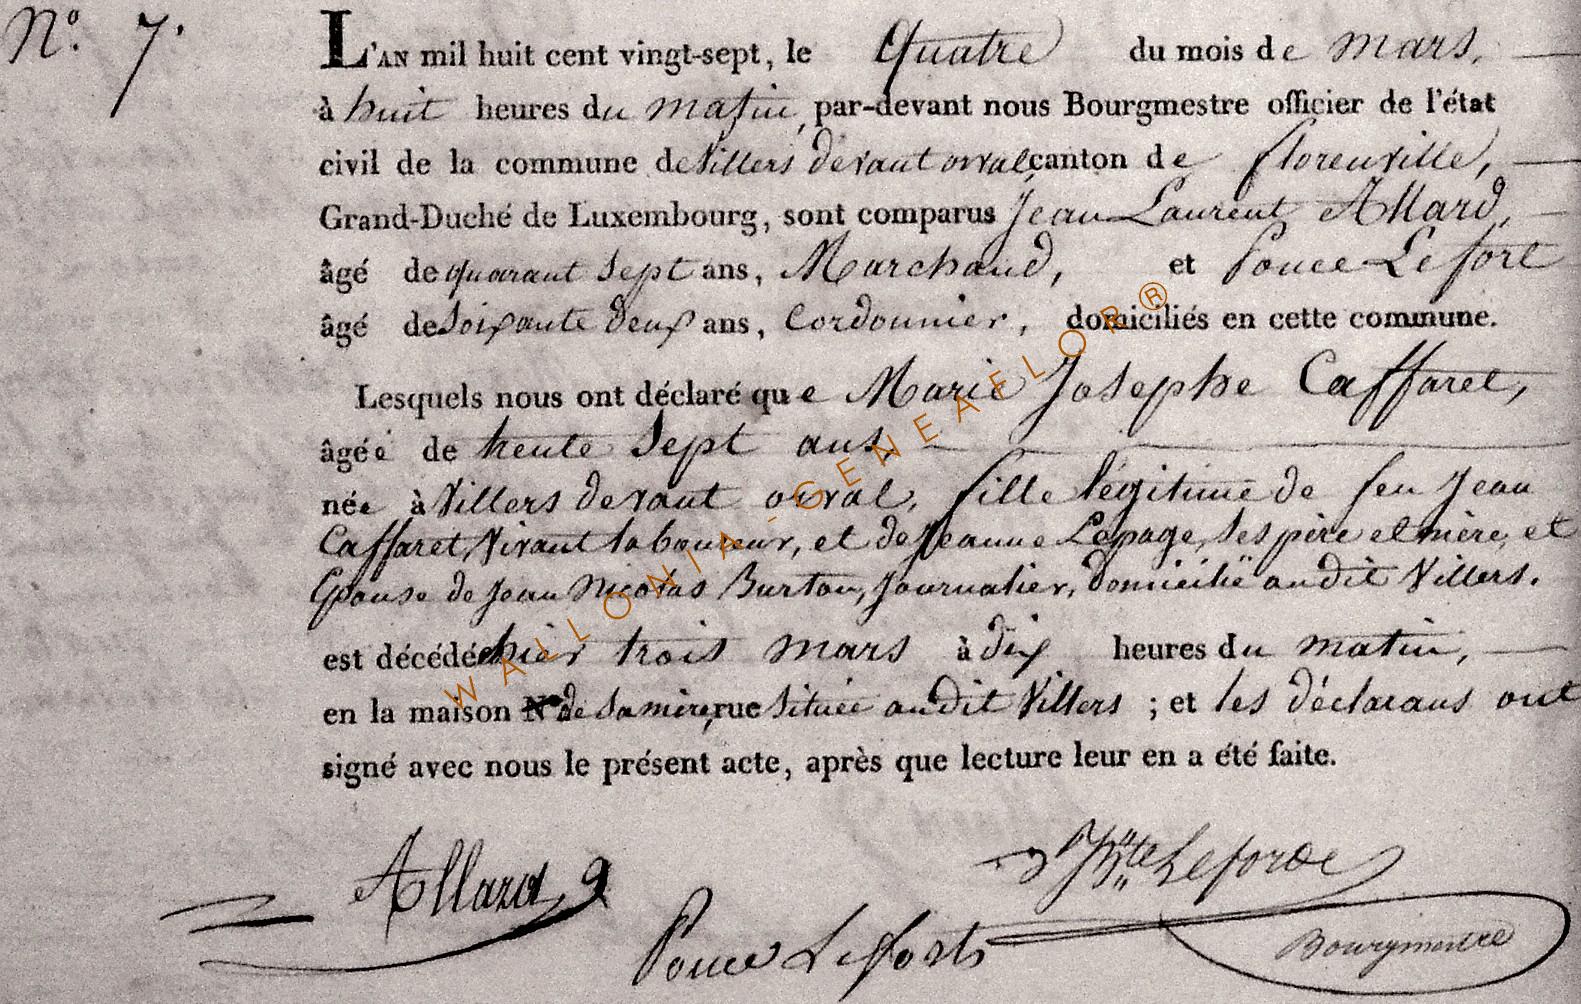 N.º 7.
L'AN mil huit cent vingt-sept, le Quatre du mois de mars,
à huit heures du matin, par-devant nous Bourgmestre officier de l'état
civil de la commune de Villers devant orval, canton de florenville,
Grand-Duché de Luxembourg, sont comparus Jean Laurent Allard,
âgé de quarant sept ans, Marchand, et Ponce Lefort
âgé de soixante deux ans, Cordonnier, domiciliés en cette commune.
Lesquels nous ont déclaré que Marie Josephe Caffaret,
âgée de trente sept ans,
née à Villers devant orval, fille légitime de feu Jean
Caffaret, Vivant laboureur, et de Jeanne Lepage, ses père et mère, et
Epouse de Jean Nicolas Burton, Journalier, domicilié audit Villers.
est décédée hier trois mars à dix heures du matin,
en la maison Nº de sa mère, rue située audit Villers ; et les déclarans ont
signé avec nous le présent acte, après que lecture leur en a été faite.
Allard
J Bte Leforde
Ponce Leforts
Bourgmestre
WALLONIA-GENEAFLOR®